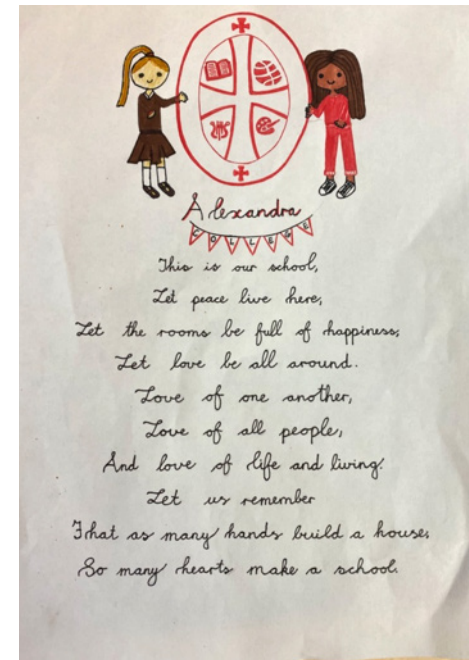 Alexandra
COLLEGE
This is our school,
Let peace live here,
Let the rooms be full of happiness,
Let love be all around.
Love of one another,
Love of all people,
And love of life and living.
Let us remember
That as many hands build a house,
So many hearts make a school.